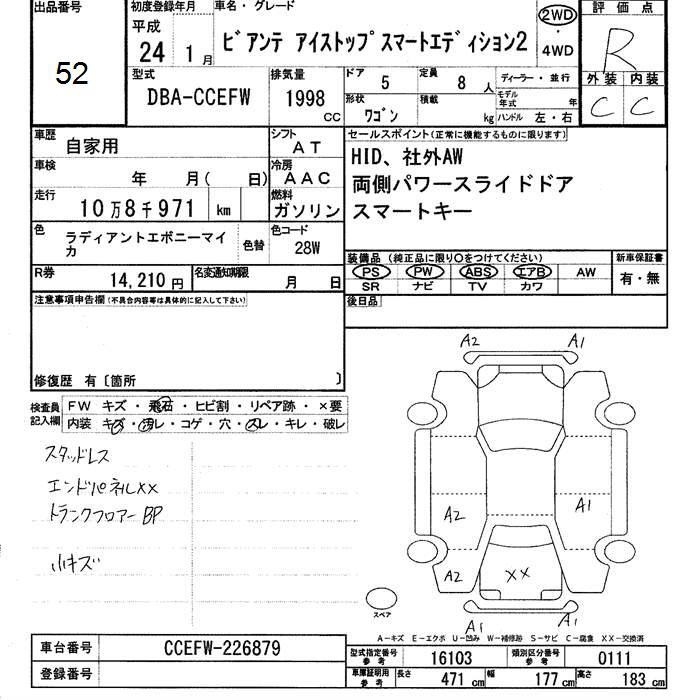 出品番号 初度登録年月 車名・グレード 評価点
52
平成 24 1月
ビアンテ アイストップスマートエディション2
2WD ・ 4WD
R
型式 DBA-CCEFW 排気量 1998 CC
ドア 5 定員 8 人 ディーラー・並行
形状 ワゴン 積載 kg モデル年式 年 ハンドル 左・右
外装 内装
C C
車歴 自家用 シフト AT
セールスポイント(正常に機能するものに限ります)
車検 年 月( 日) 冷房 AAC
HID、社外AW
走行 10万8千971 km 燃料 ガソリン
両側パワースライドドア
スマートキー
色 ラディアントエボニーマイカ 色替 色コード 28W
装備品(純正品に限り○をつけてください) 新車保証書
R券 14,210円 名変通知期限 月 日
PS PW ABS エアB AW 有・無
SR ナビ TV カワ
注意事項申告欄(不具合内容等は具体的に記入して下さい)
後日品
修復歴 有〔箇所 〕
検査員記入欄 FW キズ・飛石・ヒビ割・リペア跡・×要
内装 キズ・汚レ・コゲ・穴・スレ・キレ・破レ
スタッドレス
エンドパネルXX
トランクフロアーBP
小キズ
A2 A1
A2 A1
A2 XX
A1 A1
スペア
A-キズ E-エクボ U-凹み W-補修跡 S-サビ C-腐食 XX-交換済
車台番号 CCEFW-226879
型式指定番号参考 16103 類別区分番号参考 0111
登録番号
車庫証明用参考 長さ 471 cm 幅 177 cm 高さ 183 cm